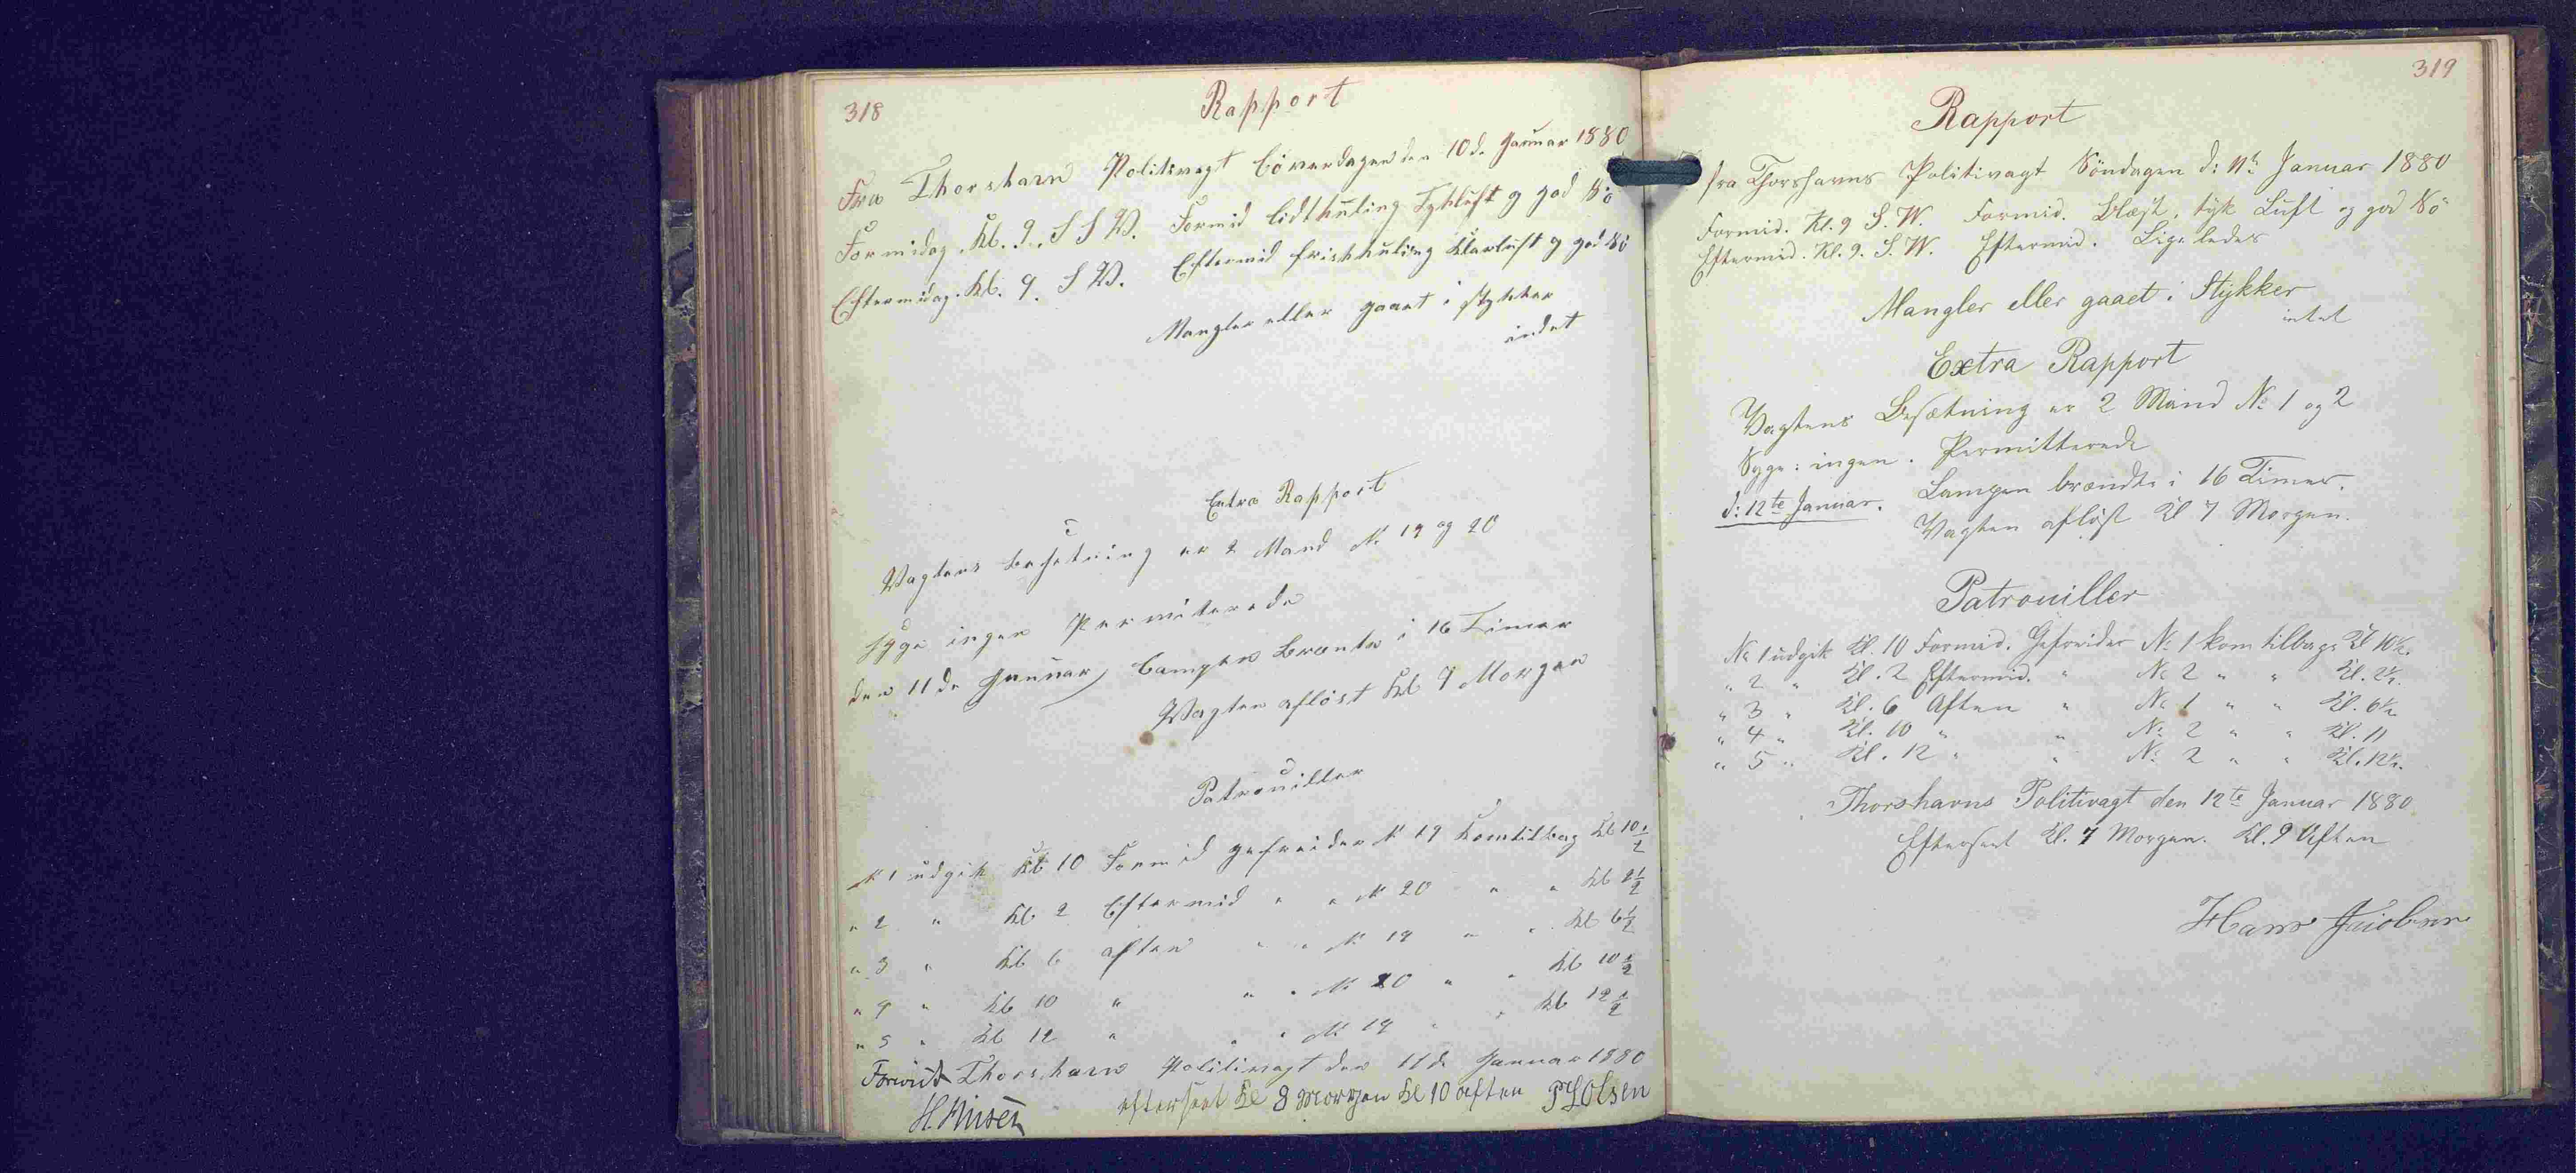 318
Rapport
Fra Thorshavn Politivagt Löverdagen den 10de Januar 1880
Formidag. Kl. 9. S S W. Formid lidt kuling Tykluft og god Sö
Eftermidag. Kl. 9. S W. Eftermid frisk kuling Klarluft og god Sö
Mangler eller gaaet i stykker
indet
Extra Rapport
Vagtens besetning er 2 Mand No 19 og 20
syge ingen Permiterede
den 11de Januar Lampen brænte i 16 Timer
Vagten aflöst Kl 7 Morgen
Patrouiller
No 1 udgik Kl 10 Formid gefreider No 19 Komtilbag Kl 10 1/2
" 2 " Kl 2 Eftermid " " No 20 " " Kl 2 1/2
" 3 " Kl 6 aften " " No 19 " " Kl 6 1/2
" 4 " Kl 10 " " " No 20 " " Kl 10 1/2
" 5 " Kl 12 " " " No 19 " " Kl 12 1/2
Thorshavn Politivagt den 11de Januar 1880
efterseet Kl 8 Morgen Kl 10 aften Olsen
319
Rapport
fra Thorshavns Politivagt Söndagen d: 11te Januar 1880
Formid. Kl. 9 S. W. Formid. Blæst, tyk Luft og god Sö
Eftermid. Kl. 9. S. W. Eftermid. Ligeledes
Mangler eller gaaet i Stykker
intet
Extra Rapport
Vagtens Besætning er 2 Mand No 1 og 2
Syge: ingen. Permitterede
d: 12te Januar. Lampen brændte i 16 Timer.
Vagten aflöst Kl 7 Morgen.
Patrouiller
No 1 udgik Kl. 10 Formid. Gefreider No 1 kom tilbage Kl 10 1/2.
" 2 " Kl. 2 Eftermid. " No 2 " " Kl. 2 1/2.
" 3 " Kl. 6 Aften " No 1 " " Kl. 6 1/2
" 4 " Kl. 10 " " No 2 " " Kl. 11
" 5 " Kl. 12 " " No 2 " " Kl. 12 1/2.
Thorshavns Politivagt den 12te Januar 1880
Efterseet Kl. 7 Morgen. Kl. 9 Aften
Hans Jacobsen